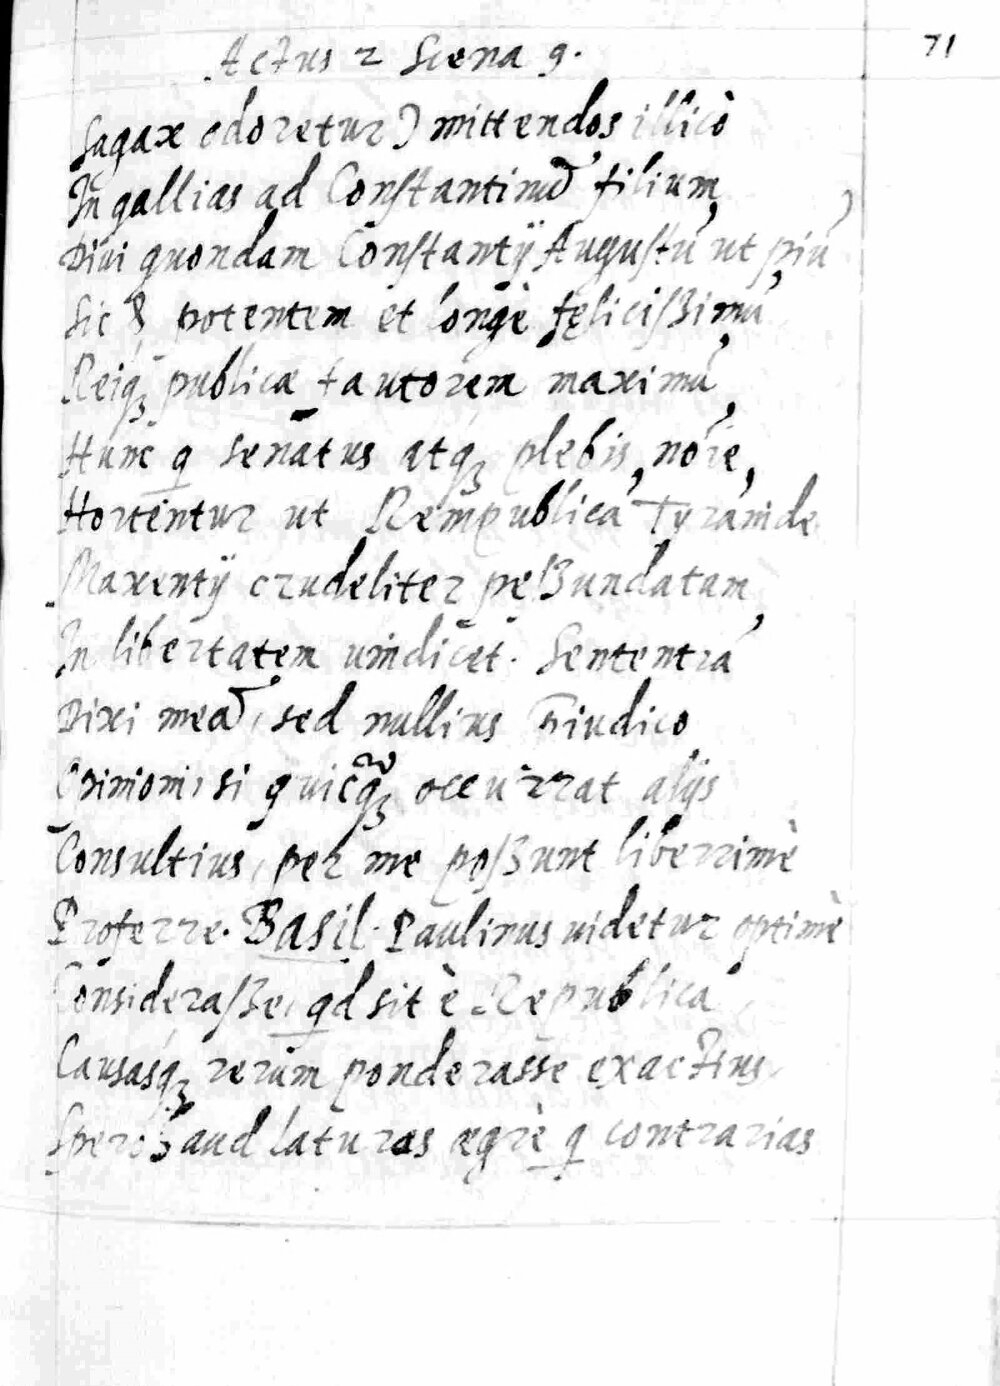 Actus 2 Scena 9.
71
Sagax odoretur) mittendos illicò
In gallias ad Constantinū filium,
Divi quondam Constantÿ Augustū, ut piū,
Sic & potentem et longè fęlicißimū,
Reiq₃ publicæ fautorem maximū,
Hunc q senatus atq₃ plebis nōie,
Hortentur ut Rempublicā Tyrānide
Maxentÿ crudeliter peßundatam,
In libertatem uindicet. Sententiā
Dixi meā, sed nullius p̄iudico
Opinioni, si quicq₃ occurrat alÿs
Consultius, per me poßunt liberrimè
Proferre. Basil. Paulinus uidetur optimè
Consideraße, qd sit è Republica
Causasq₃ rerum ponderasse exactius,
Spero haud laturos ægrè q contrarias